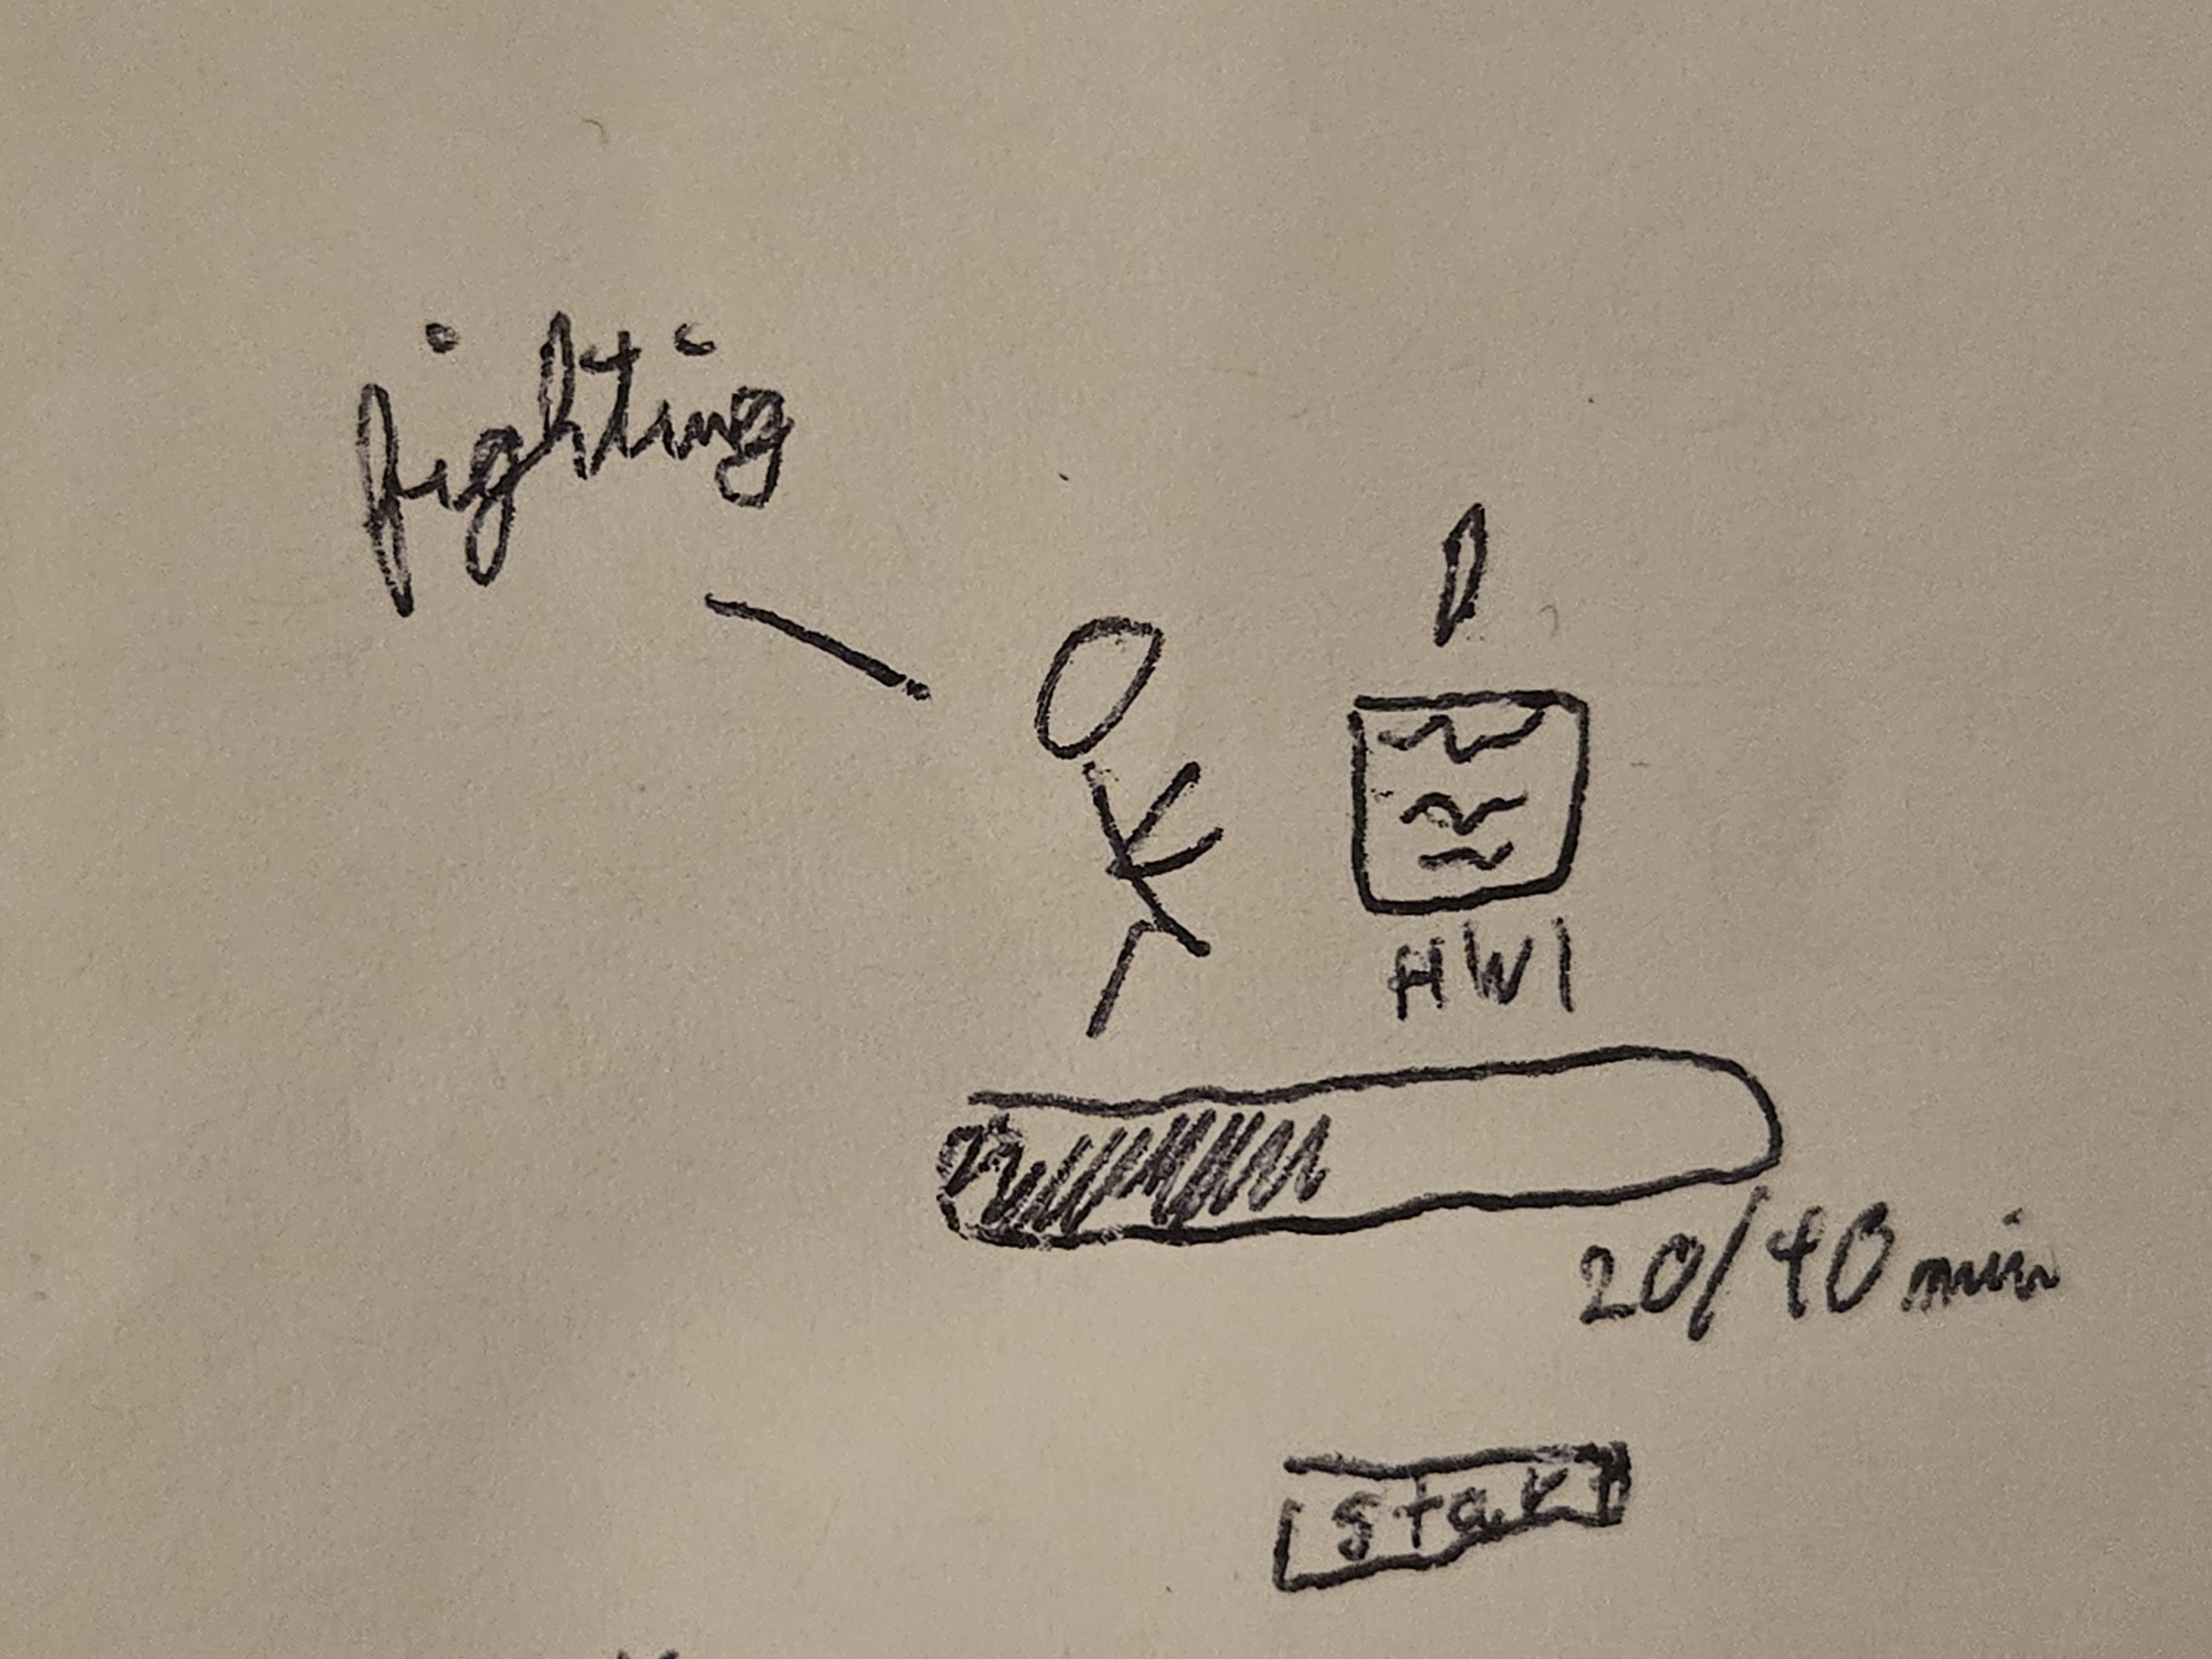 fighting
HW1
20/40 min
start